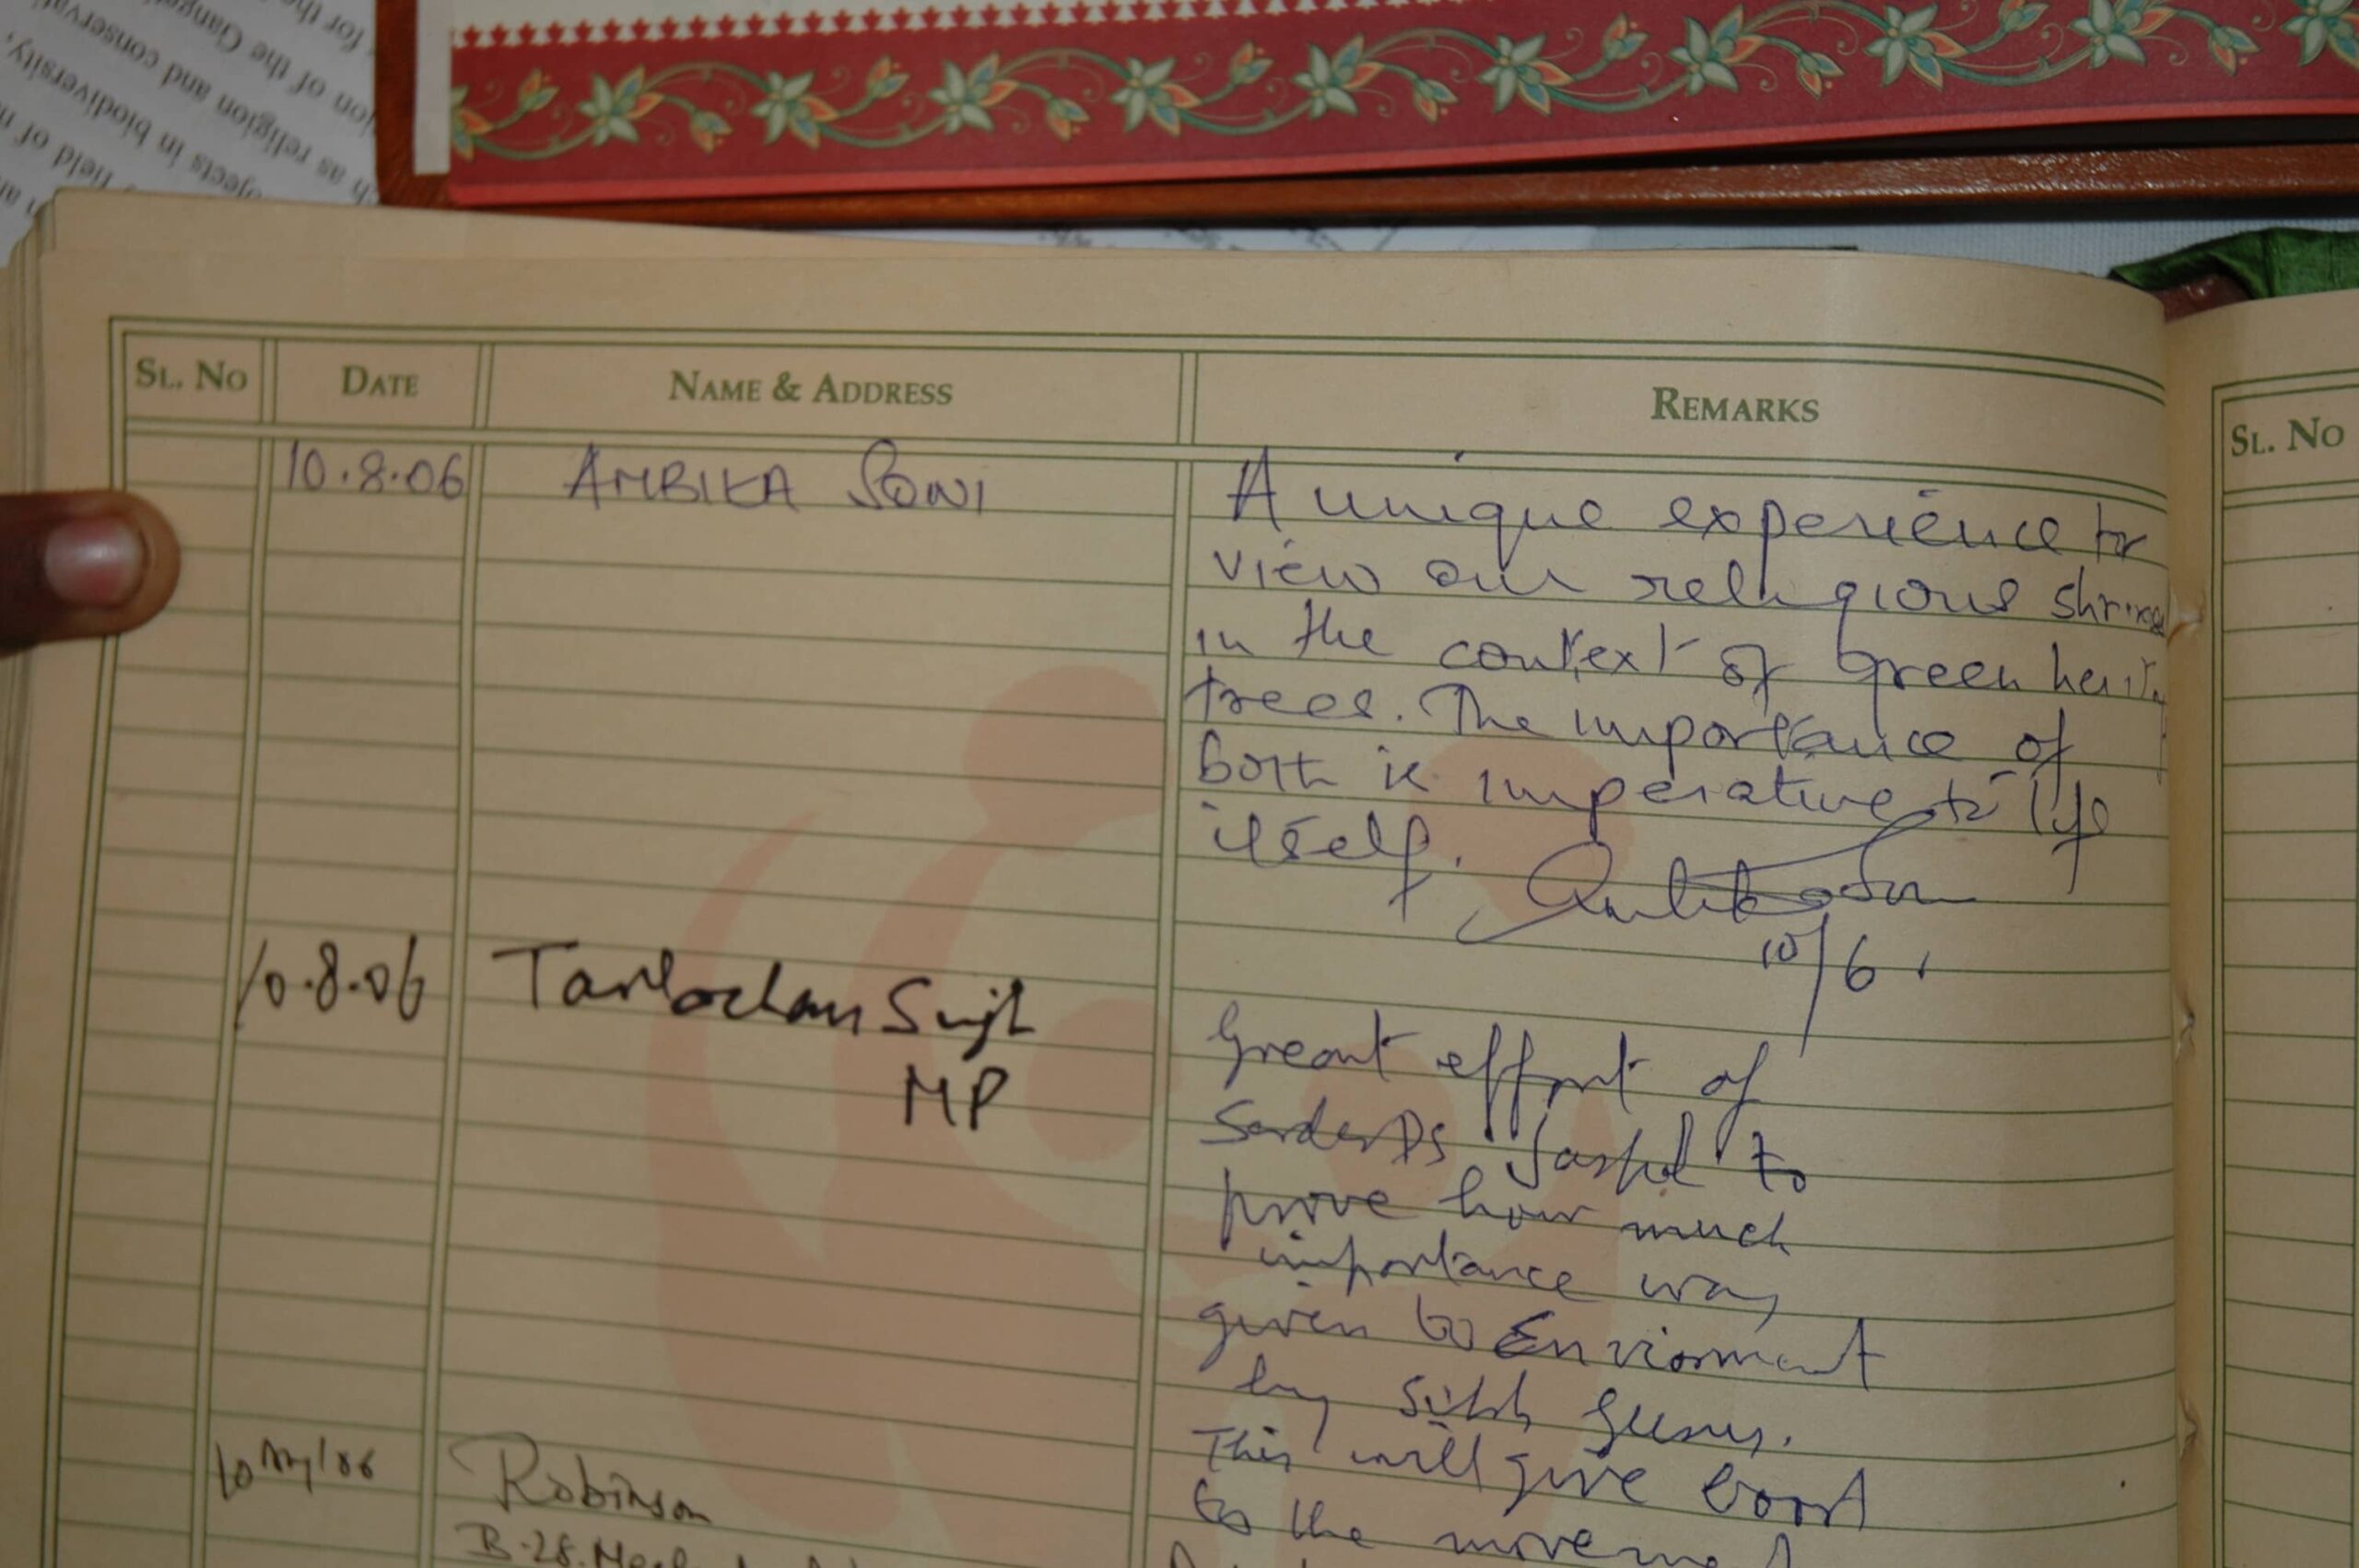 for the
ion of the Ganget
h as religion and conservat
ojects in biodiversity,
field of n
SL. NO DATE NAME & ADDRESS REMARKS
SL. NO
10.8.06 AMBIKA SONI
A unique experience to
view our religious shrines
in the context of green herit
trees. The importance of
both is imperative to life
itself.
10/6
10.8.06 Tarlochan Singh
MP
Great effort of
Sardar DS Jaspal to
prove how much
importance was
given to Enviorment
by Sikh Gurus.
This will give boost
to the movement
10 Aug/06 Robinson
B-28.